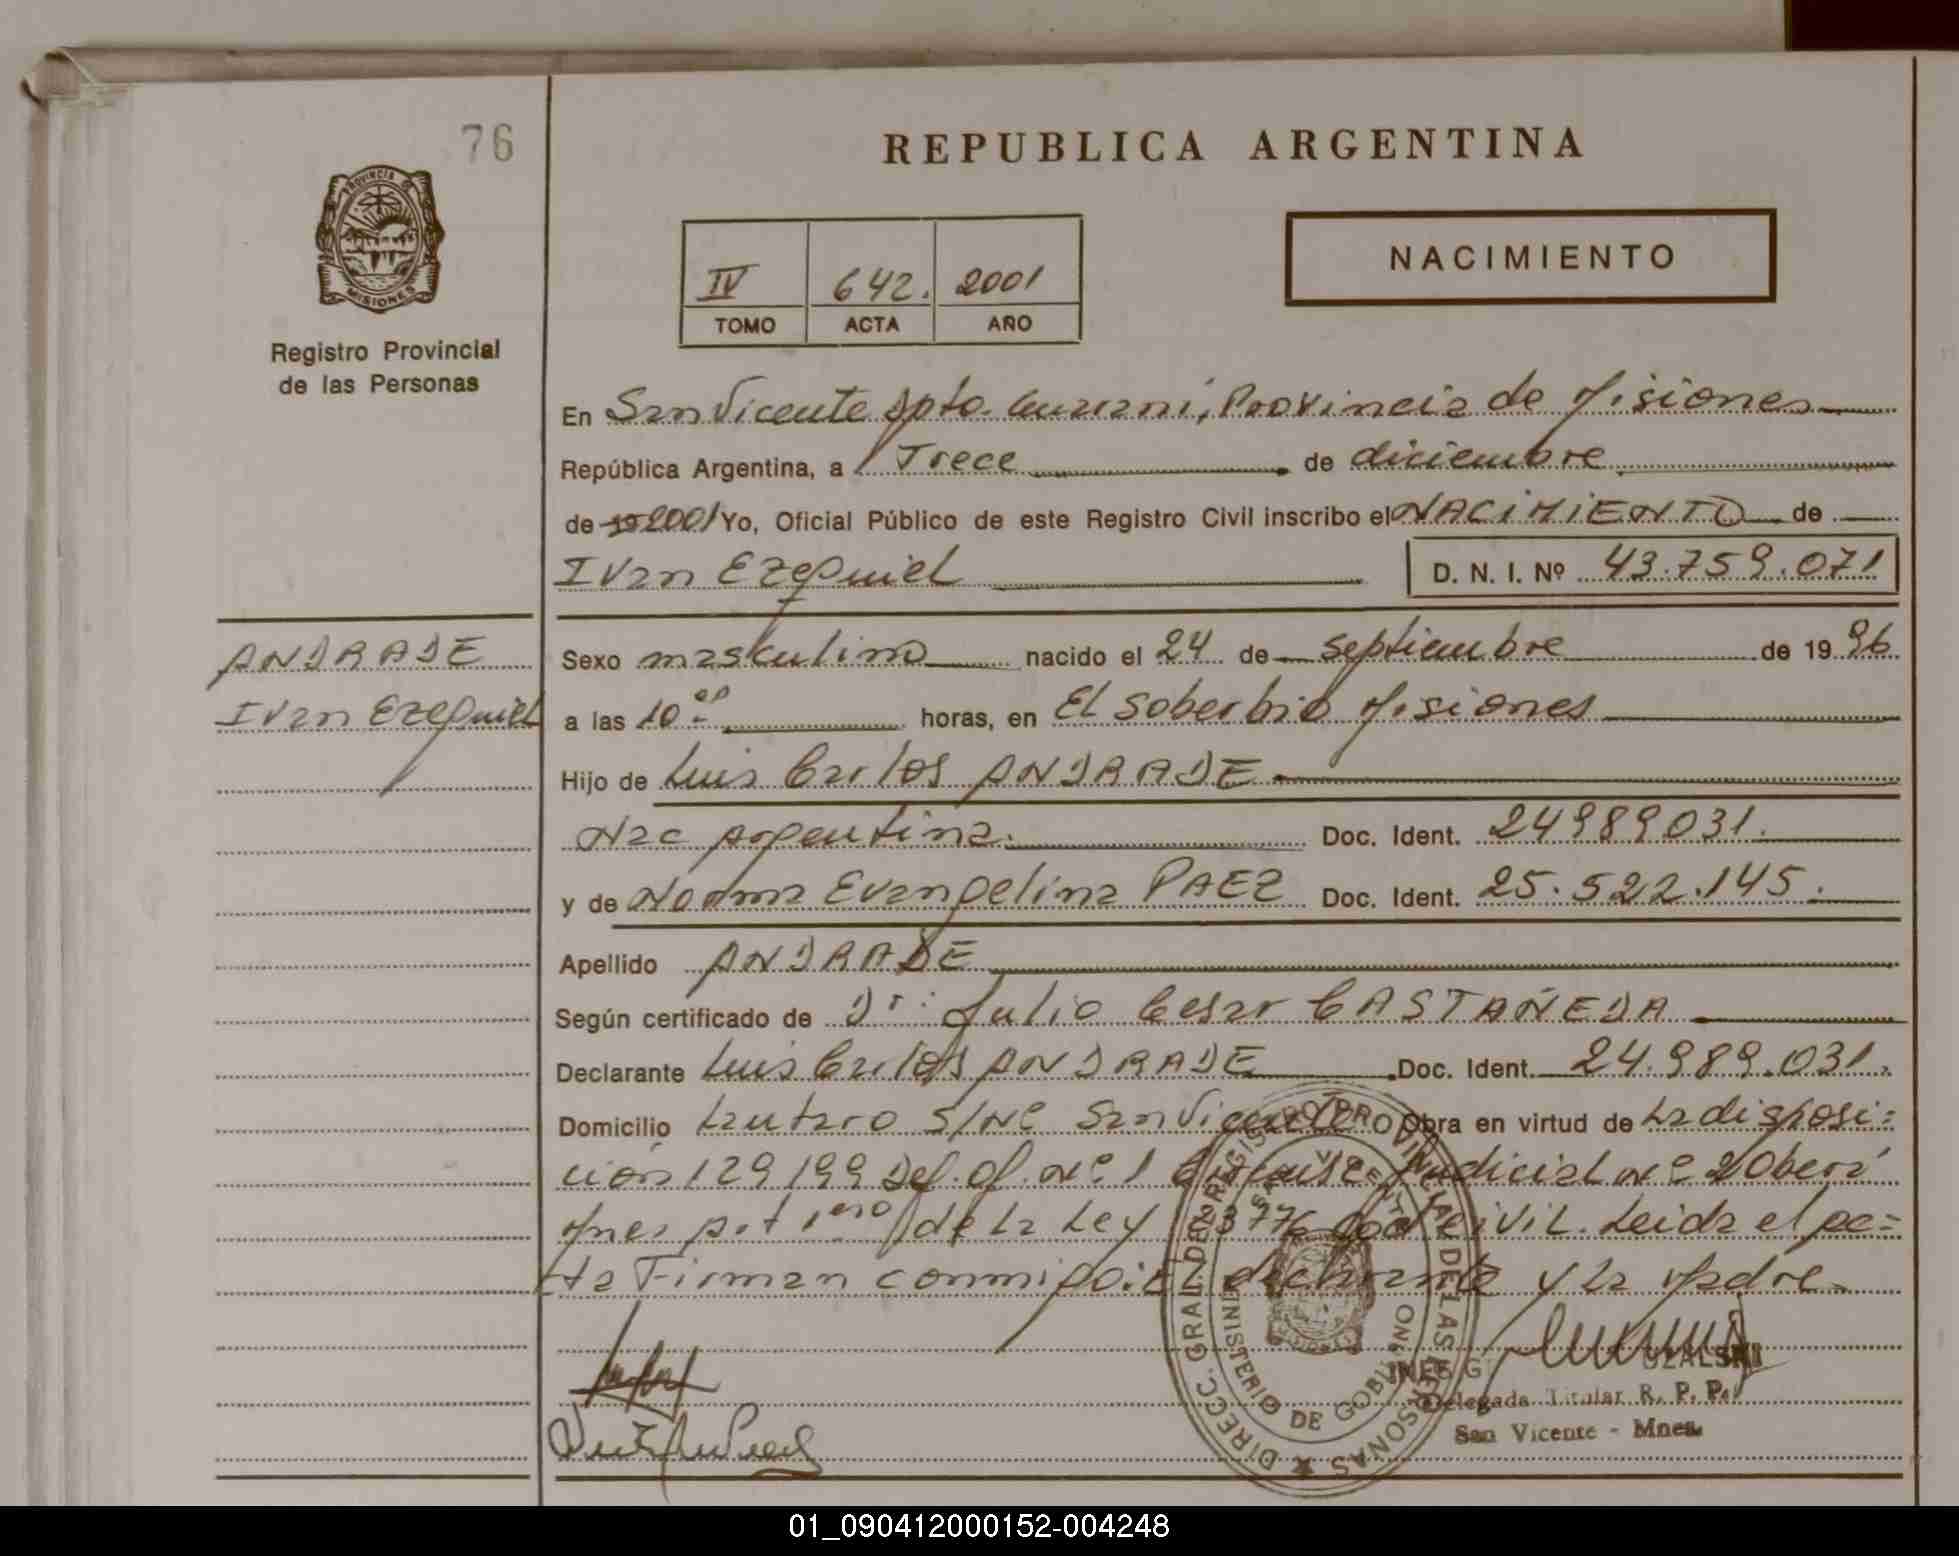 76
REPUBLICA ARGENTINA
PROVINCIA DE
MISIONES
Registro Provincial
de las Personas
IV 642. 2001
TOMO ACTA AÑO
NACIMIENTO
En San Vicente Dpto. Guarani, Provincia de Misiones
República Argentina, a Trece de diciembre
de 19 2001 Yo, Oficial Público de este Registro Civil inscribo el NACIMIENTO de
Ivan Ezequiel D. N. I. Nº 43.759.071
ANDRADE
Ivan Ezequiel
Sexo masculino nacido el 24 de septiembre de 19 96
a las 10 horas, en El Soberbio Misiones
Hijo de Luis Carlos ANDRADE
Nac Argentina. Doc. Ident. 24989031.
y de Norma Evangelina PAEZ Doc. Ident. 25.522.145.
Apellido ANDRADE
Según certificado de Dr. Julio Cesar CASTAÑEDA
Declarante Luis Carlos ANDRADE Doc. Ident. 24.989.031.
Domicilio Lautaro S/Nº San Vicente Obra en virtud de La disposi=
ción 129/99 Def. Of. Nº 1 Judicial Nº 2 Oberá
Mnes Art 1ero de La Ley 23776 Cod Civil. Leida el ac=
ta Firman conmigo: El declarante y La Madre
DIRECC. GRAL. DEL REGISTRO PROVINCIAL DE LAS PERSONAS
SAN VICENTE
MINISTERIO DE GOBIERNO
INES G
Delegada Titular R. P. P.
San Vicente - Mnes.
01_090412000152-004248